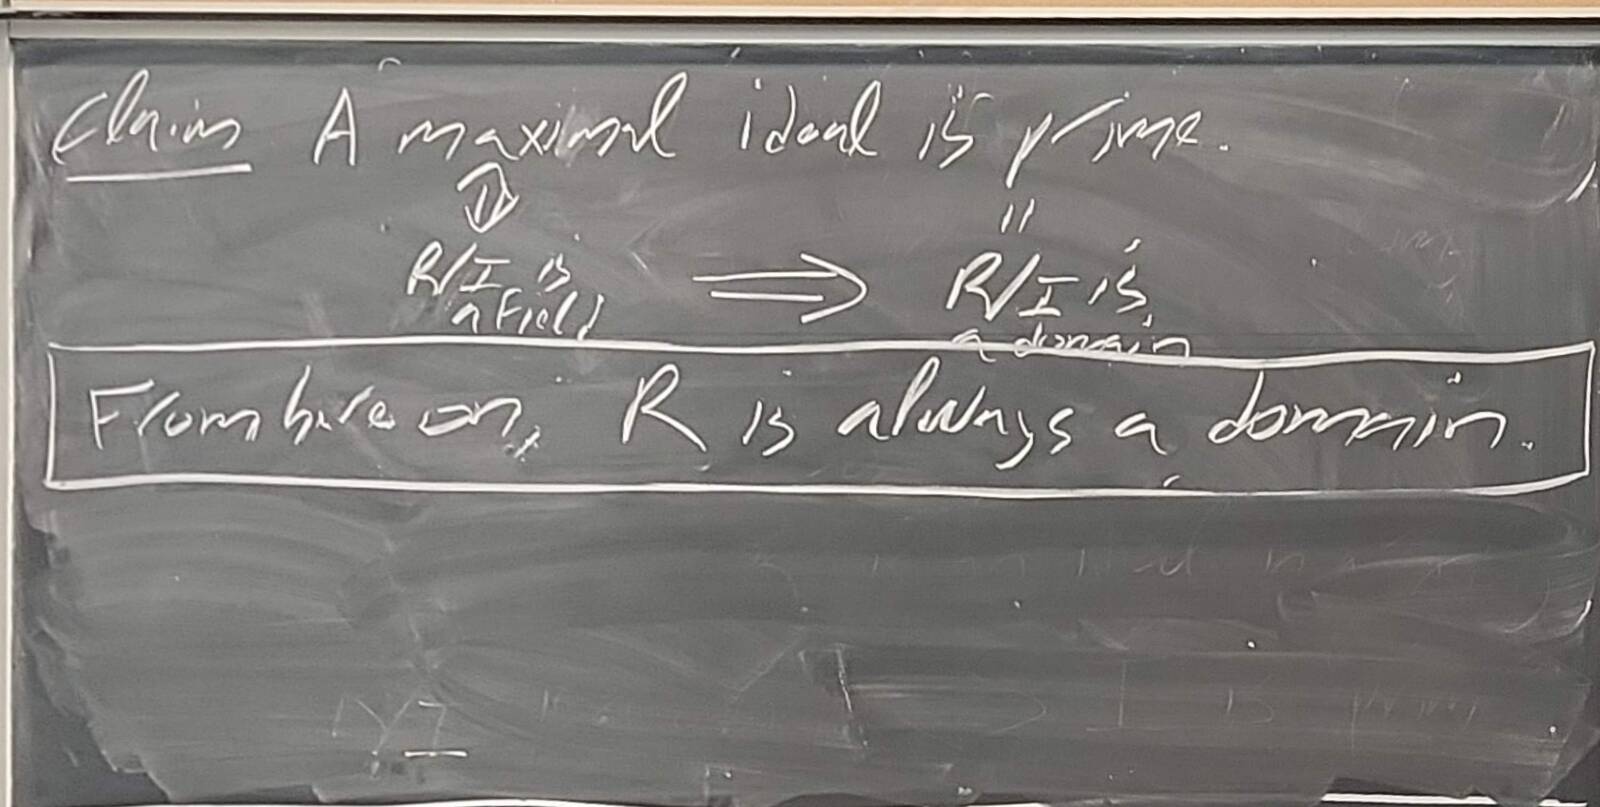 Claim A maximal ideal is prime.
⇕ ||
R/I is ⟹ R/I is
a field a domain
From here on, R is always a domain.